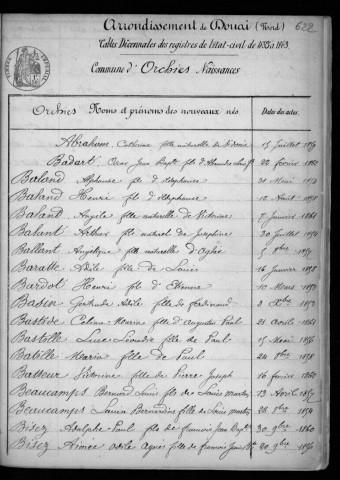 622
Arrondissement de Douai (Nord)
Tables Décennales des registres de l'état-civil de 1853 à 1863.
Commune d'Orchies Naissances
Orchies Noms et prénoms des nouveaux nés. Dates des actes.
Abraham Catherine fille naturelle de Sidonie 15 Juillet
Badart Jean Bapte fs d' 22 février
Baland Alphonse fs d'Alphonse 31 Mai
Baland Henri fs d'Alphonse Août
Balant Angèle fille naturelle de Victorine 7 Janvier 1861
Balant Arthur fs naturel de Joséphine 30 Juillet
Ballant Angélique fille naturelle d'Aglaé 5
Baratte Adèle fille de Louis 16 Janvier 1858
Bardot Henri fs d'Etienne 10 Mars
Basin Gertrude Adèle fille de Ferdinand 2 Xbre
Bastide Celina Maria fille d'Augustin Paul 21 Août 1861
Bastille Luce Léonide fille de Paul 15 Mai 1856
Batille Maria fille de Paul 24 1858
Batteur Victorine fille de Pierre Joseph 16 février 1860
Beaucamps Bernard Louis fs de Louis 13 Avril 1857
Beaucamps Laura Bernardine fille de Louis 28 8bre 1854
Bisez Adolphe Paul fs de françois Jean Bapte 30 9bre 1860
Bisez Aimée Adèle Agnès fille de françois Jean Bte 20 9bre 1856